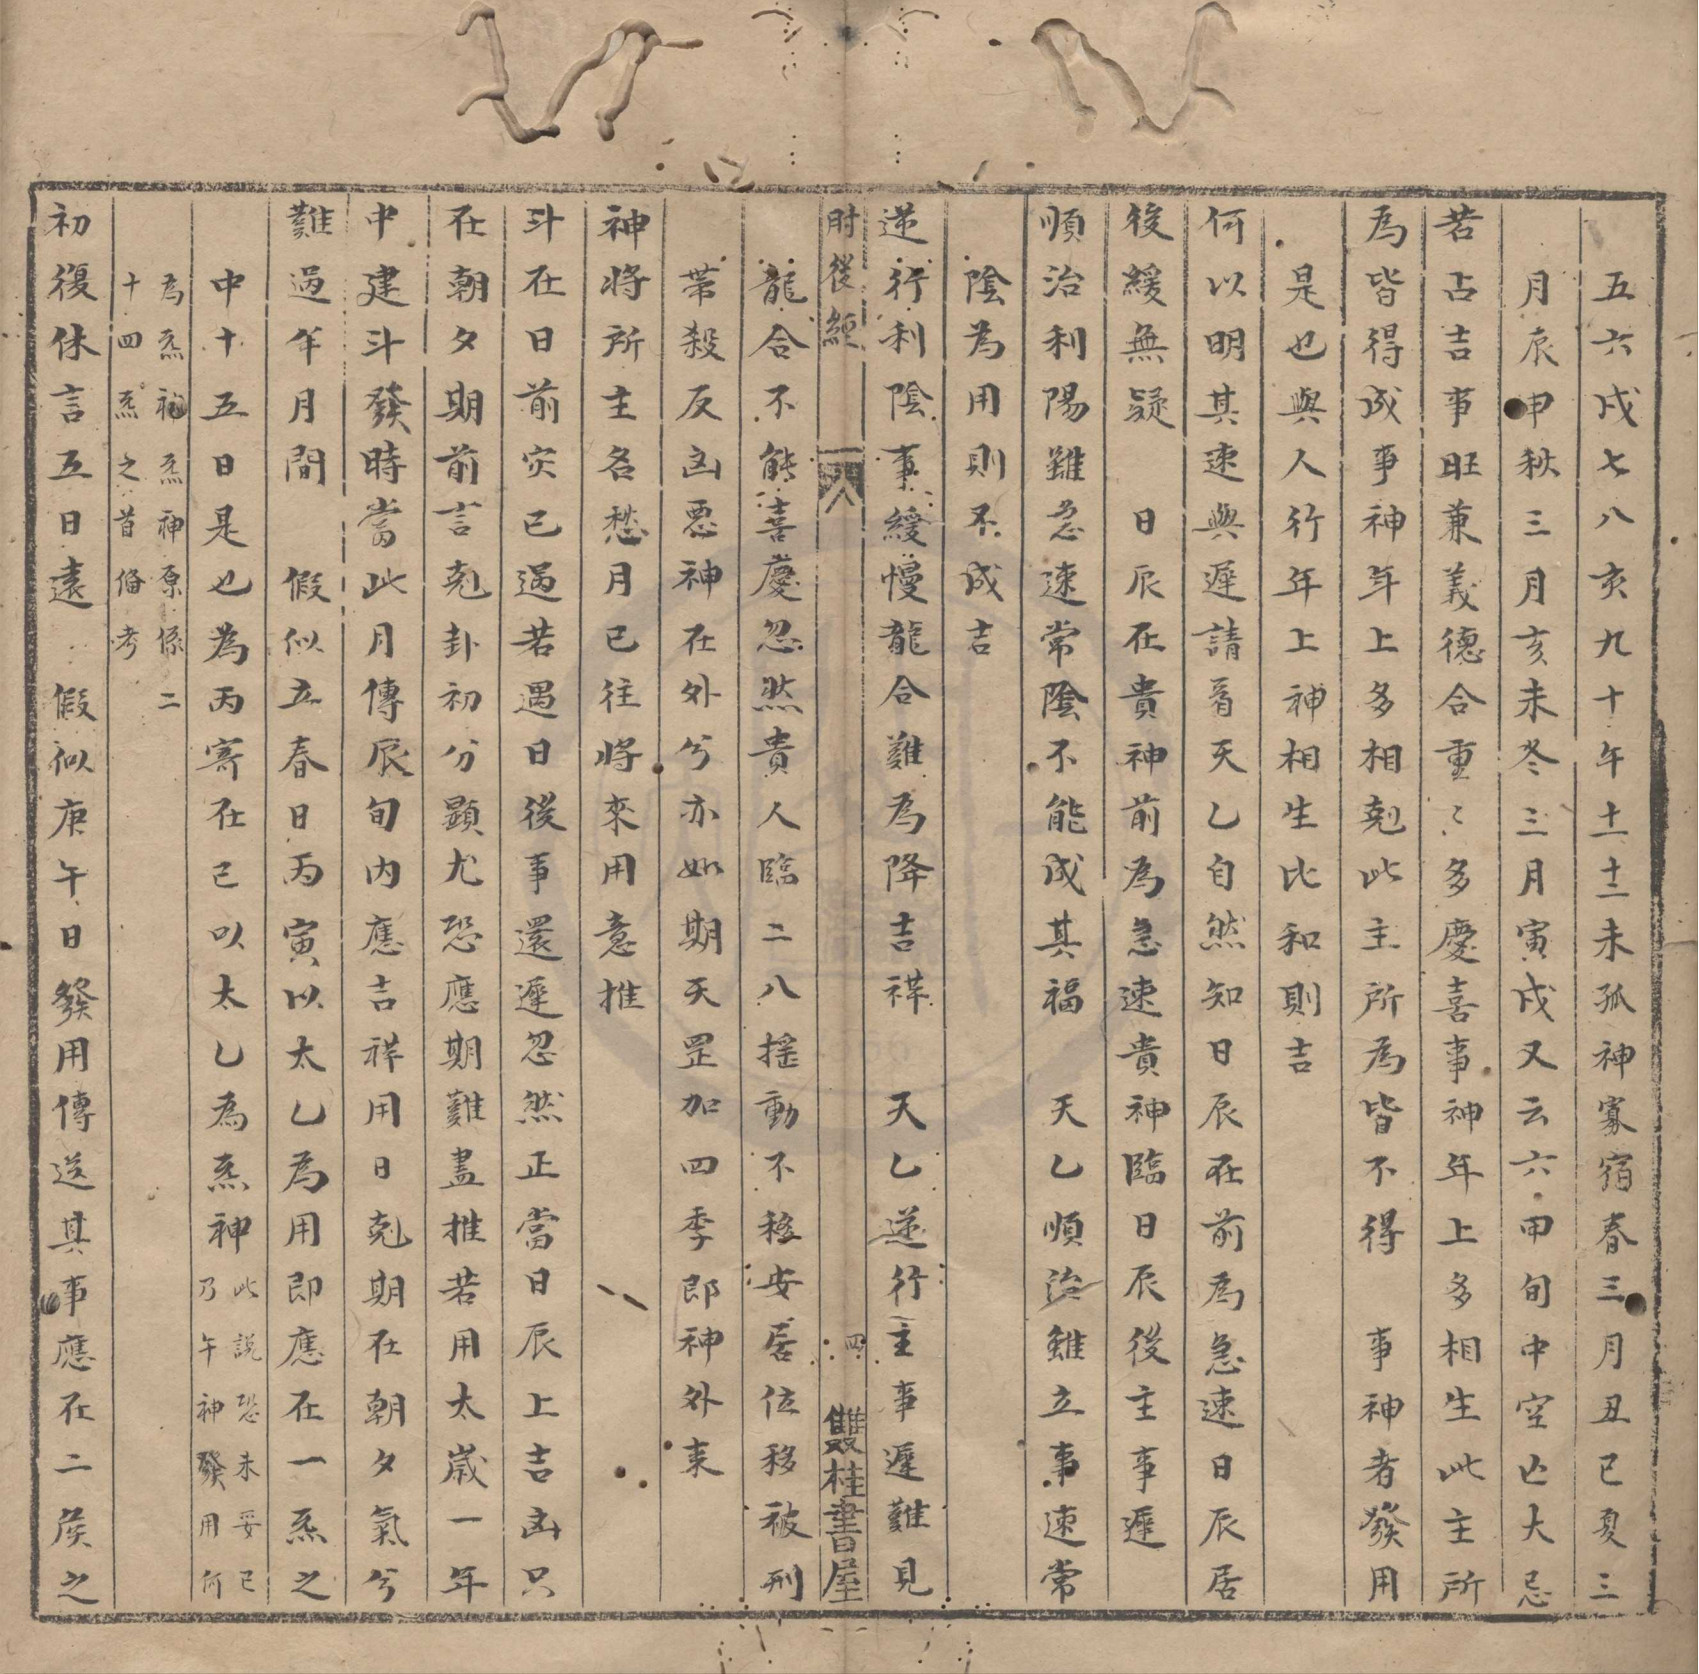 五六戌七八亥九十午十一十二未孤神寡宿春三月丑巳夏三
月辰申秋三月亥未冬三月寅戌又云六甲旬中空亡大忌
若占吉事旺兼義德合重〻多慶喜事神年上多相生此主所
為皆得成事神年上多相剋此主所為皆不得　事神者發用
是也與人行年上神相生比和則吉
何以明其速與遲請看天乙自然知日辰在前為急速日辰居
後緩無疑　日辰在貴神前為急速貴神臨日辰後主事遲
順治利陽雖急速常陰不能成其福　天乙順治雖立事速常
陰為用則不成吉
逆行利陰事緩慢龍合難為降吉祥　天乙逆行主事遲難見
肘後經　八　四　雙桂書屋
龍合不能喜慶忽然貴人臨二八搖動不移安居位移被刑
帶殺反凶惡神在外兮亦如期天罡加四季即神外來
神將所主各愁月已往將來用意推
斗在日前灾已過若遇日後事還遲忽然正當日辰上吉凶只
在朝夕期前言剋卦初分顯尤恐應期難盡推若用太歲一年
中建斗發時當此月傳辰旬內應吉祥用日剋期在朝夕氣兮
難過年月間　假似立春日丙寅以太乙為用即應在一炁之
中十五日是也為丙寄在巳以太乙為炁神此說恐未妥巳
乃午神發用何
為炁神炁神原係二
十四炁之首俻考
初復休言五日遠　假似庚午日發用傳送其事應在二侯之